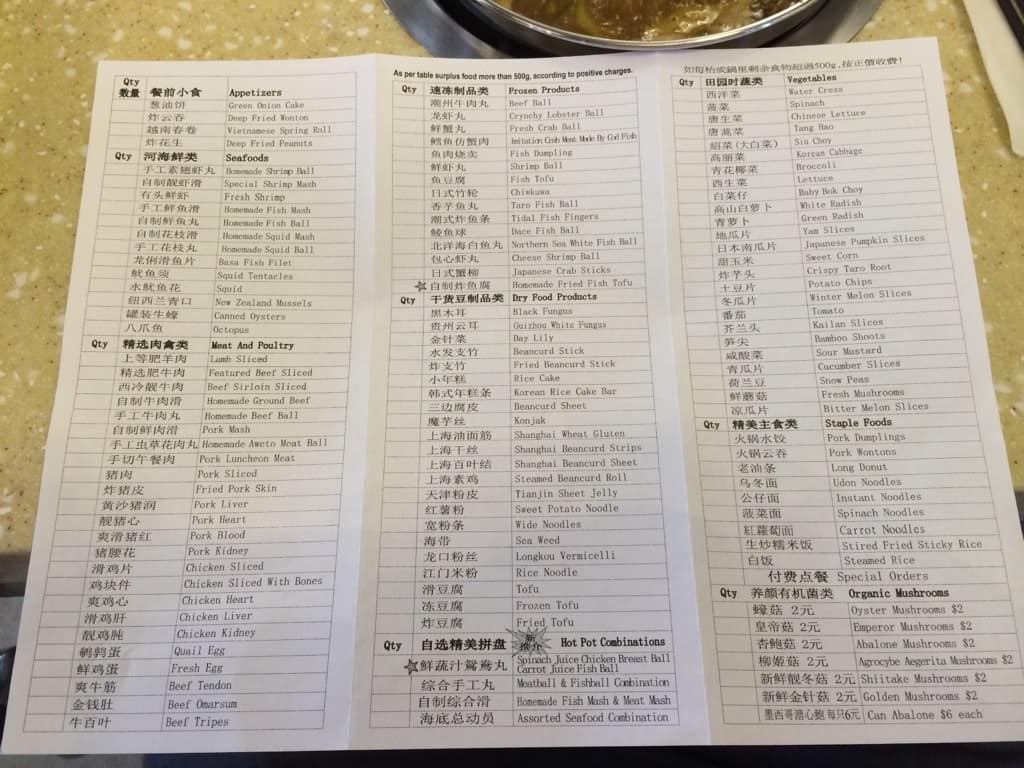 Qty 数量 餐前小食 Appetizers
葱油饼 Green Onion Cake
炸云吞 Deep Fried Wonton
越南春卷 Vietnamese Spring Roll
炸花生 Deep Fried Peanuts
Qty 河海鲜类 Seafoods
手工素翅虾丸 Homemade Shrimp Ball
自制靓虾滑 Special Shrimp Mash
有头鲜虾 Fresh Shrimp
手工鲜鱼滑 Homemade Fish Mash
自制鲜鱼丸 Homemade Fish Ball
自制花枝滑 Homemade Squid Mash
手工花枝丸 Homemade Squid Ball
龙俐滑鱼片 Basa Fish Filet
鱿鱼须 Squid Tentacles
水鱿鱼花 Squid
纽西兰青口 New Zealand Mussels
罐装生蠔 Canned Oysters
八爪鱼 Octopus
Qty 精选肉禽类 Meat And Poultry
上等肥羊肉 Lamb Sliced
精选肥牛肉 Featured Beef Sliced
西冷靓牛肉 Beef Sirloin Sliced
自制牛肉滑 Homemade Ground Beef
手工牛肉丸 Homemade Beef Ball
自制鲜肉滑 Pork Mash
手工虫草花肉丸 Homemade Aweto Meat Ball
手切午餐肉 Pork Luncheon Meat
猪肉 Pork Sliced
炸猪皮 Fried Pork Skin
黄沙猪润 Pork Liver
靓猪心 Pork Heart
爽滑猪红 Pork Blood
猪腰花 Pork Kidney
滑鸡片 Chicken Sliced
鸡块件 Chicken Sliced With Bones
爽鸡心 Chicken Heart
滑鸡肝 Chicken Liver
靓鸡肫 Chicken Kidney
鹌鹑蛋 Quail Egg
鲜鸡蛋 Fresh Egg
爽牛筋 Beef Tendon
金钱肚 Beef Omarsum
牛百叶 Beef Tripes
As per table surplus food more than 500g, according to positive charges.
Qty 速冻制品类 Frozen Products
潮州牛肉丸 Beef Ball
龙虾丸 Crynchy Lobster Ball
鲜蟹丸 Fresh Crab Ball
鳕鱼仿蟹肉 Imitation Crab Meat Made By Cod Fish
鱼肉烧卖 Fish Dumpling
鲜虾丸 Shrimp Ball
鱼豆腐 Fish Tofu
日式竹轮 Chiwkuwa
香芋鱼丸 Taro Fish Ball
潮式炸鱼条 Tidal Fish Fingers
鲮鱼球 Dace Fish Ball
北洋海白鱼丸 Northern Sea White Fish Ball
包心虾丸 Cheese Shrimp Ball
日式蟹柳 Japanese Crab Sticks
自制炸鱼腐 Homemade Fried Fish Tofu
Qty 干货豆制品类 Dry Food Products
黑木耳 Black Fungus
贵州云耳 Guizhou White Fungus
金针菜 Day Lily
水发支竹 Beancurd Stick
炸支竹 Fried Beancurd Stick
小年糕 Rice Cake
韩式年糕条 Korean Rice Cake Bar
三边腐皮 Beancurd Sheet
魔芋丝 Konjak
上海油面筋 Shanghai Wheat Gluten
上海干丝 Shanghai Beancurd Strips
上海百叶结 Shanghai Beancurd Sheet
上海素鸡 Steamed Beancurd Roll
天津粉皮 Tianjin Sheet Jelly
红薯粉 Sweet Potato Noodle
宽粉条 Wide Noodles
海带 Sea Weed
龙口粉丝 Longkou Vermicelli
江门米粉 Rice Noodle
滑豆腐 Tofu
冻豆腐 Frozen Tofu
炸豆腐 Fried Tofu
Qty 自选精美拼盘 新推介 Hot Pot Combinations
鲜蔬汁鸳鸯丸 Spinach Juice Chicken Breast Ball
Carrot Juice Fish Ball
综合手工丸 Meatball & Fishball Combination
自制综合滑 Homemade Fish Mash & Meat Mash
海底总动员 Assorted Seafood Combination
如每枱或鍋里剩余食物超過500g,按正價收費!
Qty 田园时蔬类 Vegetables
西洋菜 Water Cress
菠菜 Spinach
唐生菜 Chinese Lettuce
唐蒿菜 Tang Hao
紹菜(大白菜) Siu Choy
高丽菜 Korean Cabbage
青花椰菜 Broccoli
西生菜 Lettuce
白菜仔 Baby Bok Choy
高山白萝卜 White Radish
青萝卜 Green Radish
地瓜片 Yam Slices
日本南瓜片 Japanese Pumpkin Slices
甜玉米 Sweet Corn
炸芋头 Crispy Taro Root
土豆片 Potato Chips
冬瓜片 Winter Melon Slices
番茄 Tomato
芥兰头 Kailan Slices
笋尖 Bamboo Shoots
咸酸菜 Sour Mustard
青瓜片 Cucumber Slices
荷兰豆 Snow Peas
鲜蘑菇 Fresh Mushrooms
凉瓜片 Bitter Melon Slices
Qty 精美主食类 Staple Foods
火锅水饺 Pork Dumplings
火锅云吞 Pork Wontons
老油条 Long Donut
乌冬面 Udon Noodles
公仔面 Instant Noodles
菠菜面 Spinach Noodles
紅蘿蔔面 Carrot Noodles
生炒糯米饭 Stired Fried Sticky Rice
白饭 Steamed Rice
付费点餐 Special Orders
Qty 养颜有机菌类 Organic Mushrooms
蠔菇 2元 Oyster Mushrooms $2
皇帝菇 2元 Emperor Mushrooms $2
杏鲍菇 2元 Abalone Mushrooms $2
柳姬菇 2元 Agrocybe Aegerita Mushrooms $2
新鲜靓冬菇 2元 Shiitake Mushrooms $2
新鲜金针菇 2元 Golden Mushrooms $2
墨西哥溏心鲍 每只6元 Can Abalone $6 each